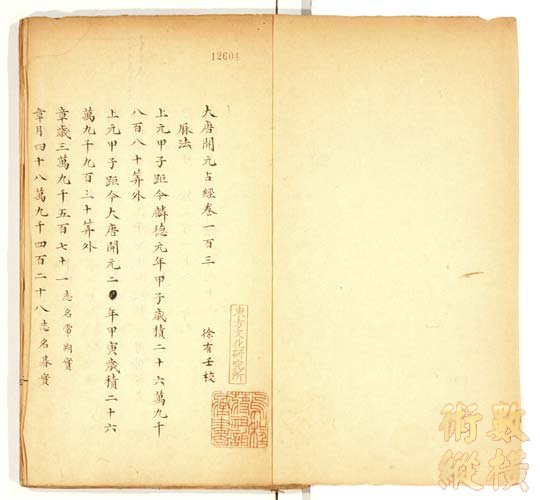 12604
大唐開元占經卷一百三
徐有壬校
厤法
上元甲子距今麟德元年甲子歲積二十六萬九千
八百八十筭外
上元甲子距今大唐開元二年甲寅歲積二十六
萬九千九百三十筭外
章歲三萬九千五百七十一志名常朔實
章月四十八萬九千四百二十八志名朞實
東方文化研究所
術數
縱橫